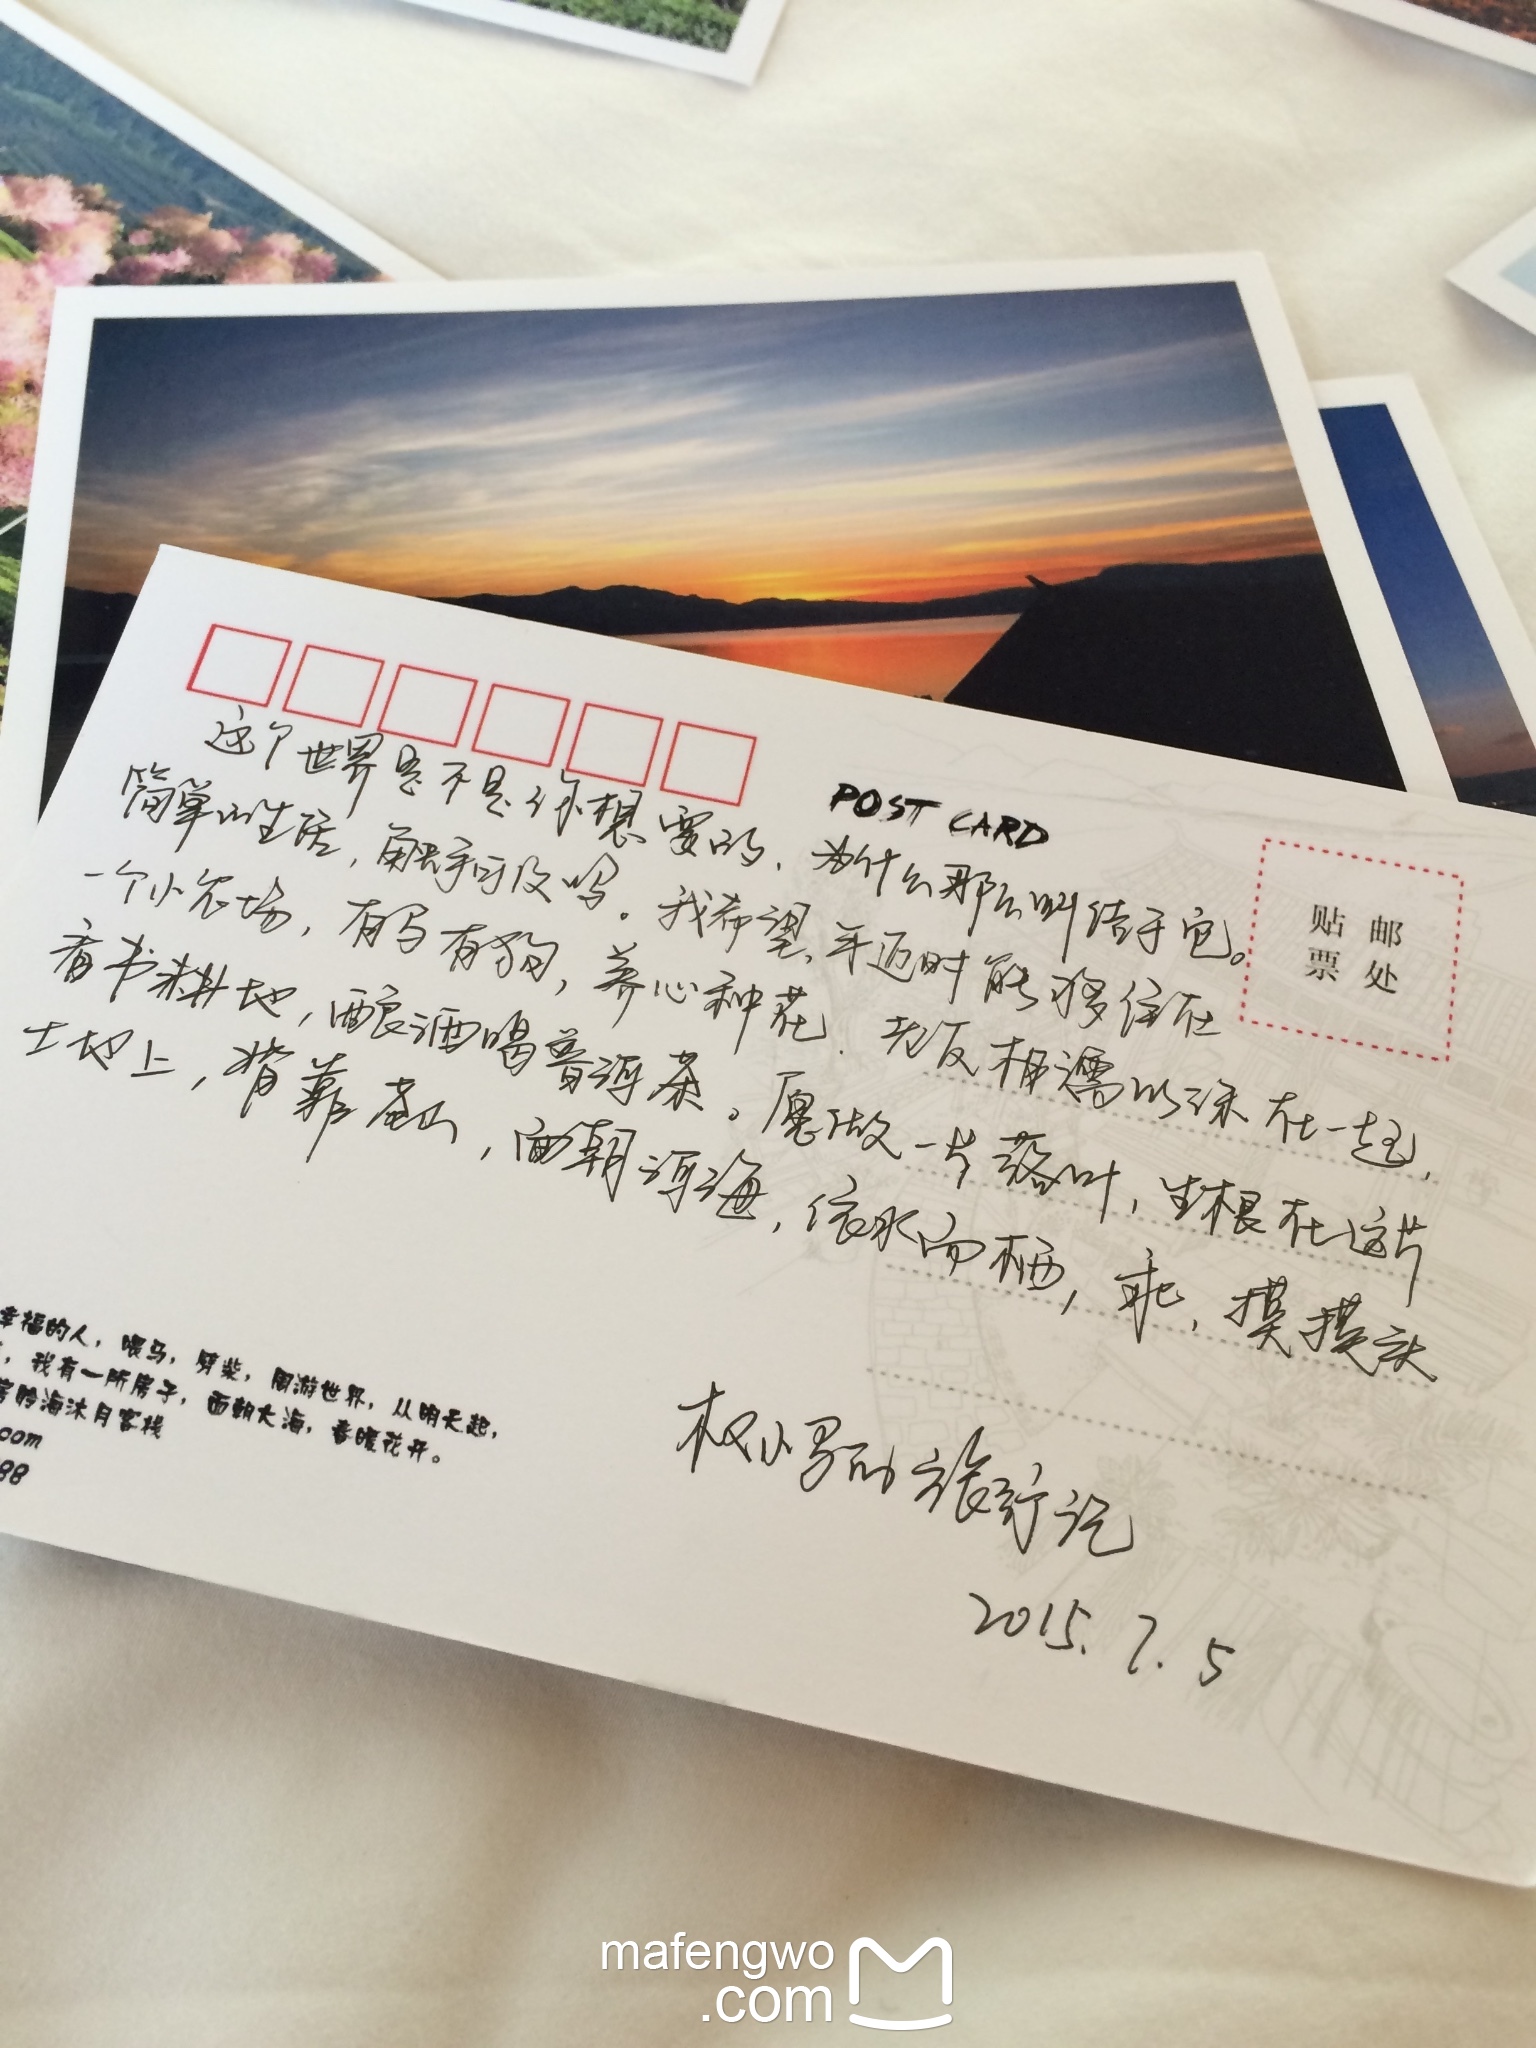 这个世界是不是你想要的，为什么那么纠结于它。
简单的生活，触手可及吗。我希望，年迈时能够住在
一个小农场，有马有狗，养心种花，力及相濡以沫在一起，
看书耕地，酿酒喝普洱茶。愿做一片落叶，生根在这片
土地上，背靠苍山，面朝洱海，依水而栖，乖，摸摸头
权小男的旅行记
2015.7.5
POST CARD
贴邮
票处
幸福的人，喂马，劈柴，周游世界，从明天起，
，我有一所房子，面朝大海，春暖花开。
聆海沐月客栈
com
88
mafengwo
.com